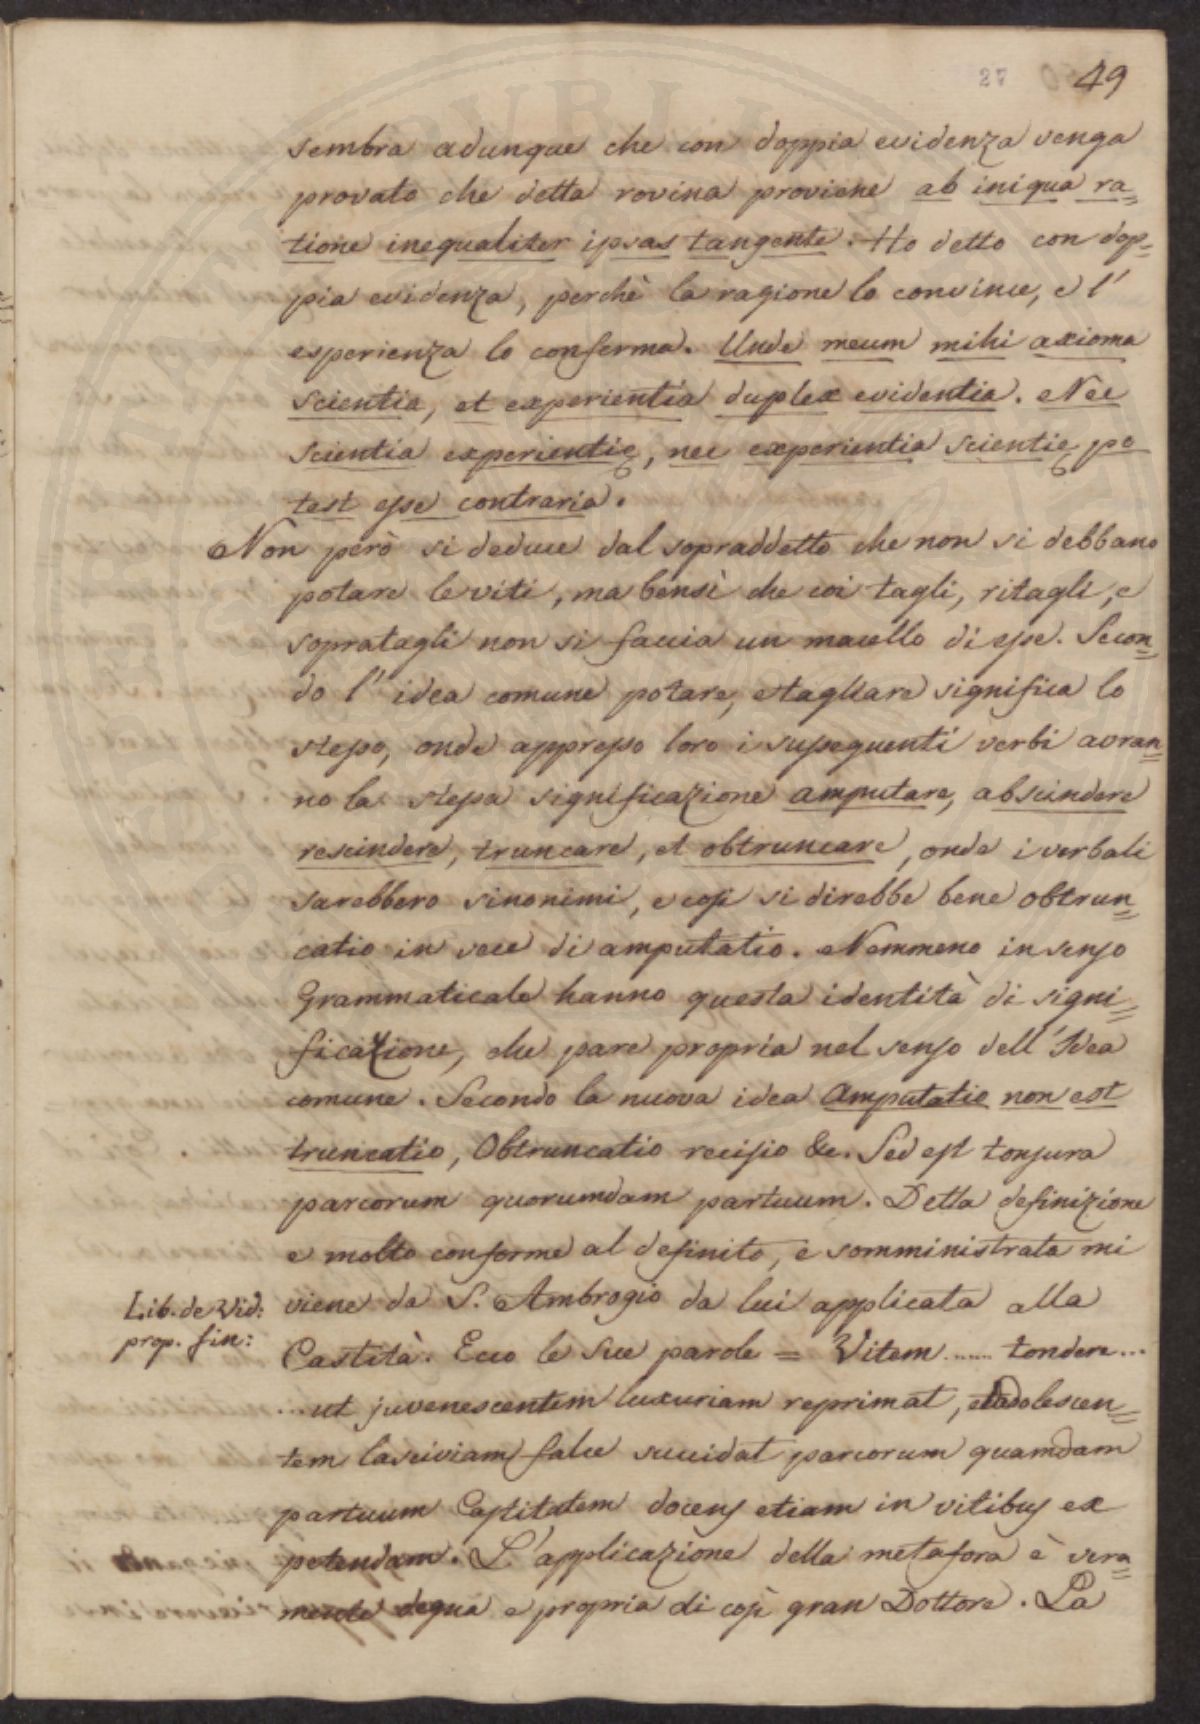 27 49
sembra adunque che con doppia evidenza venga
provato che detta rovina proviene ab iniqua ra=
tione inequaliter ipsas tangente. Ho detto con dop=
pia evidenza, perchè la ragione lo convince, e l'
esperienza lo conferma. Unde meum mihi axioma
scientia, et experientia duplex evidentia. Nec
scientia experientię, nec experientia scientię po
test esse contraria.
Non però si deduce dal sopraddetto che non si debbano
potare le viti, ma bensì che coi tagli, ritagli, e
sopratagli non si faccia un macello di esse. Secon=
do l'idea comune potare, e tagliare significa lo
stesso, onde appresso loro i susseguenti verbi avran=
no la stessa significazione amputare, abscindere
rescindere, truncare, et obtruncare, onde i verbali
sarebbero sinonimi, e così si direbbe bene obtrun=
catio in vece di amputatio. Nemmeno in senso
Grammaticale hanno questa identità di signi=
ficazione, che pare propria nel senso dell'Idea
comune. Secondo la nuova idea Amputatio non est
truncatio, Obtruncatio recisio &c. Sed est tonsura
parcorum quorumdam partuum. Detta definizione
e molto conforme al definito, e somministrata mi
Lib. de Vid: viene da S. Ambrogio da lui applicata alla
prop. fin: Castità. Ecco le sue parole = Vitem ...... tondere ...
... ut juvenescentem luxuriam reprimat, et adolescen=
tem lasciviam falce succidat parcorum quamdam
partuum Castitatem docens etiam in vitibus ex
petendam. L'applicazione della metafora è vera=
mente degna e propria di così gran Dottore. La